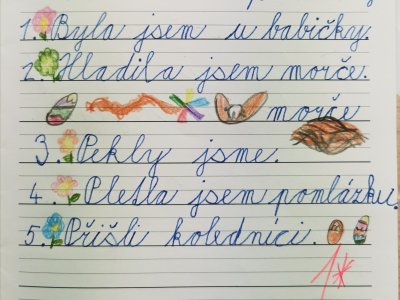 1. Byla jsem u babičky.
2. Hladila jsem morče.
morče
3. Pekly jsme.
4. Pletla jsem pomlázku.
5. Přišli koledníci.
1*